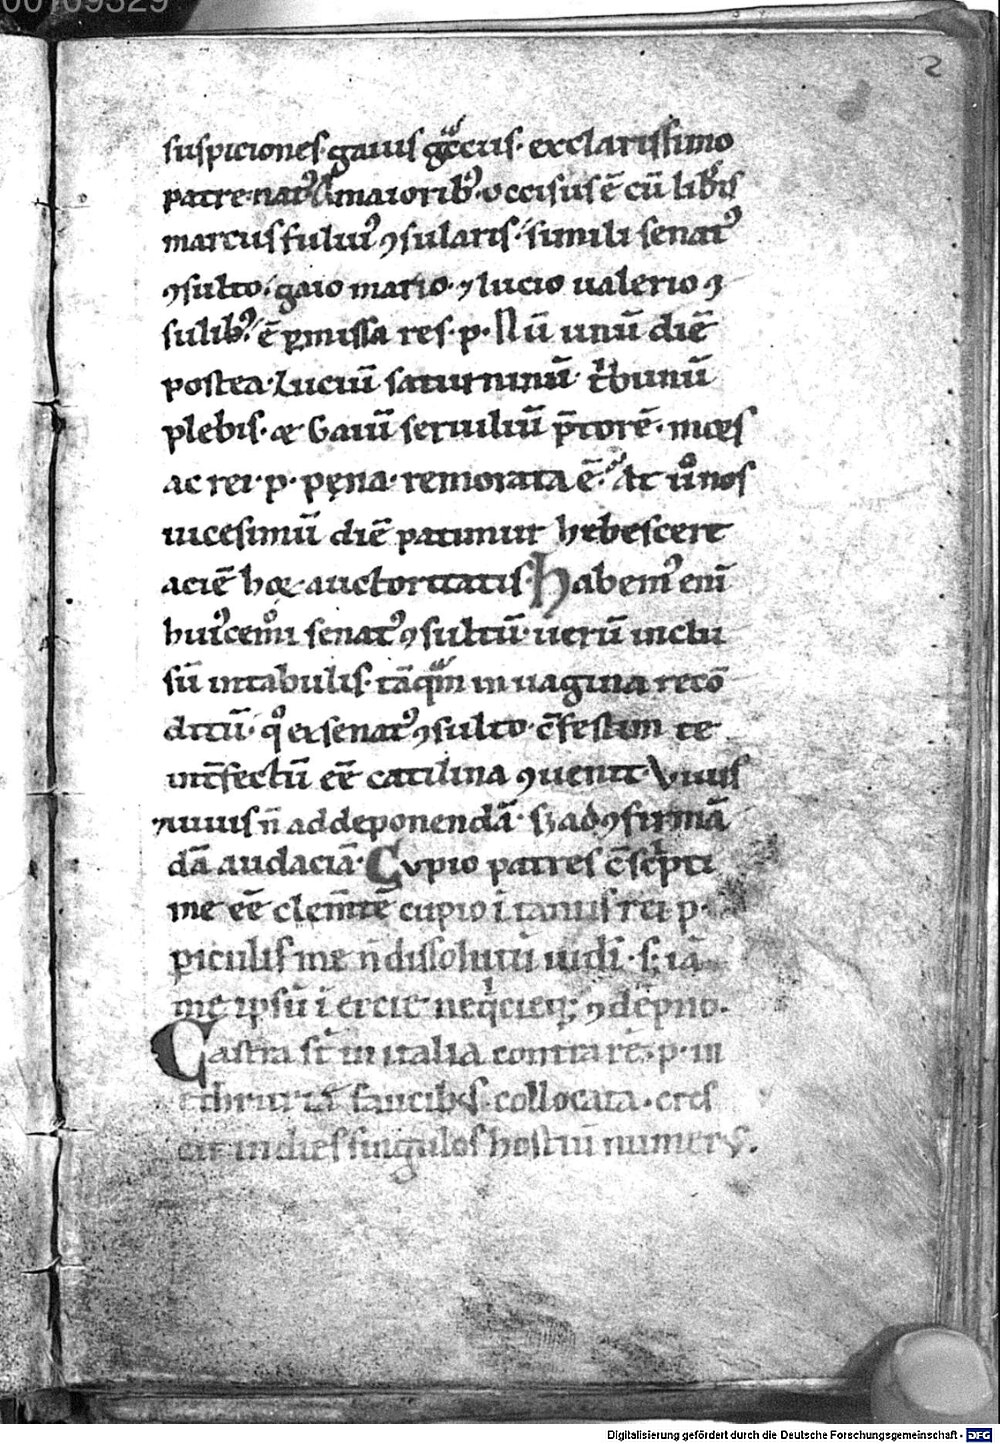 00109329
2
suspiciones· gaius gͣccus· exclarissimo
patre· natꝰ & maioribꝰ· occisus ē cū libͥs
marcus fuluiꝰ ꝯsularis· simili senatꝰ
ꝯsulto· gaio mario· ⁊ lucio ualerio ꝯ
sulibꝰ ē ꝑmissa res· p· Nū unū diē
postea· Luciū saturninū tͥbunū
plebis· & Gaiū seruiliū p̄torē· mors
ac rei· p· pęna· remorata ē· At uͦ nos
uicesimū diē patimur hebescere
aciē hoꝝ auctoritatis· Habemꝰ enī
huiꝰcemͦi senatꝰ ꝯsultū· uerū inclu
sū intabulis· tāqͣm inuagina recō
ditū· qͦ ex senatꝰ ꝯsulto· ↄ̄festim te
int̄fectū eē catilina ꝯuenit· Viuis
⁊uiuis n̄ addeponendā· sꝫ adꝯfirmā
dā audaciā· Cupio patres ↄ̄scͥpti
me eē clem̄tē cupio ī tantis rei p·
ꝑiculis me n̄ dissolutū uidi· s; iā
me ipsū ī ercie neqͥcieq; ꝯdēpno·
Castra st̄ in italia contra rē· p· in
ethruriȩ faucibꝰ· collocata· cres
cit indies singulos hostiū numerꝰ.
Digitalisierung gefördert durch die Deutsche Forschungsgemeinschaft - DFG